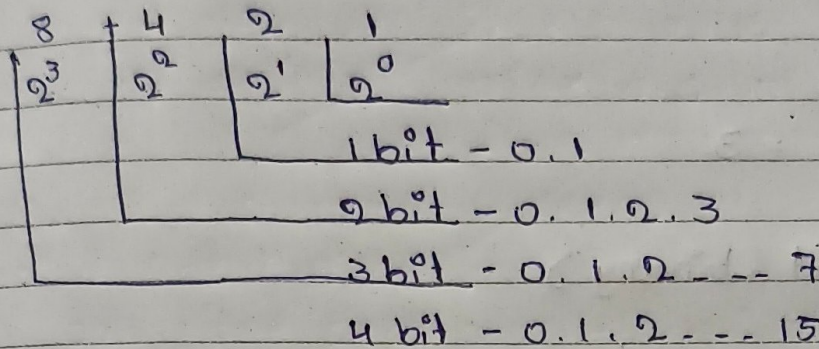 8 + 4 2 1
2³ 2² 2¹ 2⁰
1 bit - 0.1
2 bit - 0.1.2.3
3 bit - 0.1.2 --- 7
4 bit - 0.1.2 --- 15